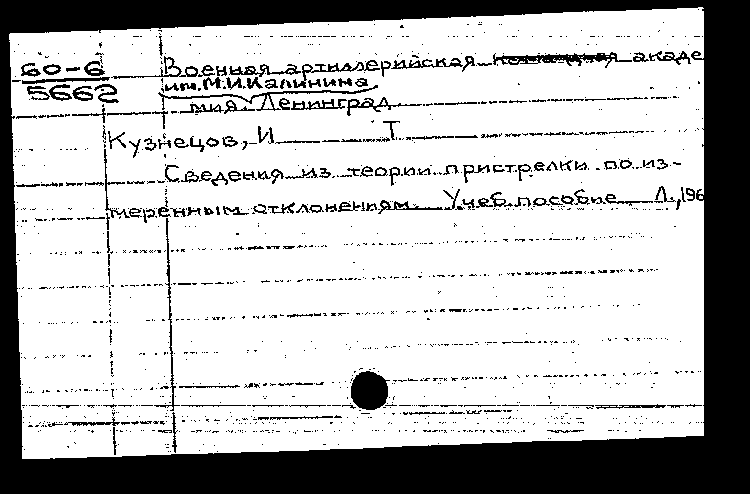 60-6
5662
Военная артиллерийская акаде
им. М.И. Калинина
мия. Ленинград
Кузнецов, И Т
Сведения из теории пристрелки по из-
меренным отклонениям. Учеб. пособие Л., 196